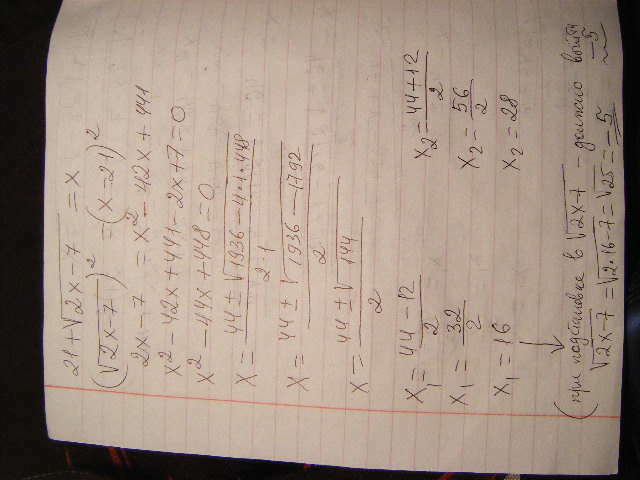 21+√2x-7 = x
(√2x-7)² = (x-21)²
2x-7 = x²-42x+441
x²-42x+441-2x+7=0
x²-44x+448=0
x = 44±√1936-4·1·448 / 2·1
x = 44±√1936-1792 / 2
x = 44±√144 / 2
x₁ = 44-12 / 2 x₂ = 44+12 / 2
x₁ = 32 / 2 x₂ = 56 / 2
x₁ = 16 x₂ = 28
(при подстановке в √2x-7 - должно выйти -5
√2x-7 = √2·16-7 = √25 = -5